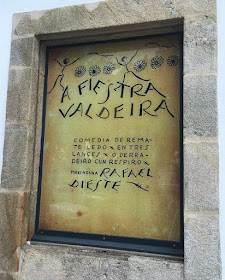 A FIESTRA
VALDEIRA
COMEDIA DE REMA-
TE LEDO × EN TRES
LANCES × O DERRA-
DEIRO CUN RESPIRO ×
MAXINOUNA RAFAEL
DIESTE ×